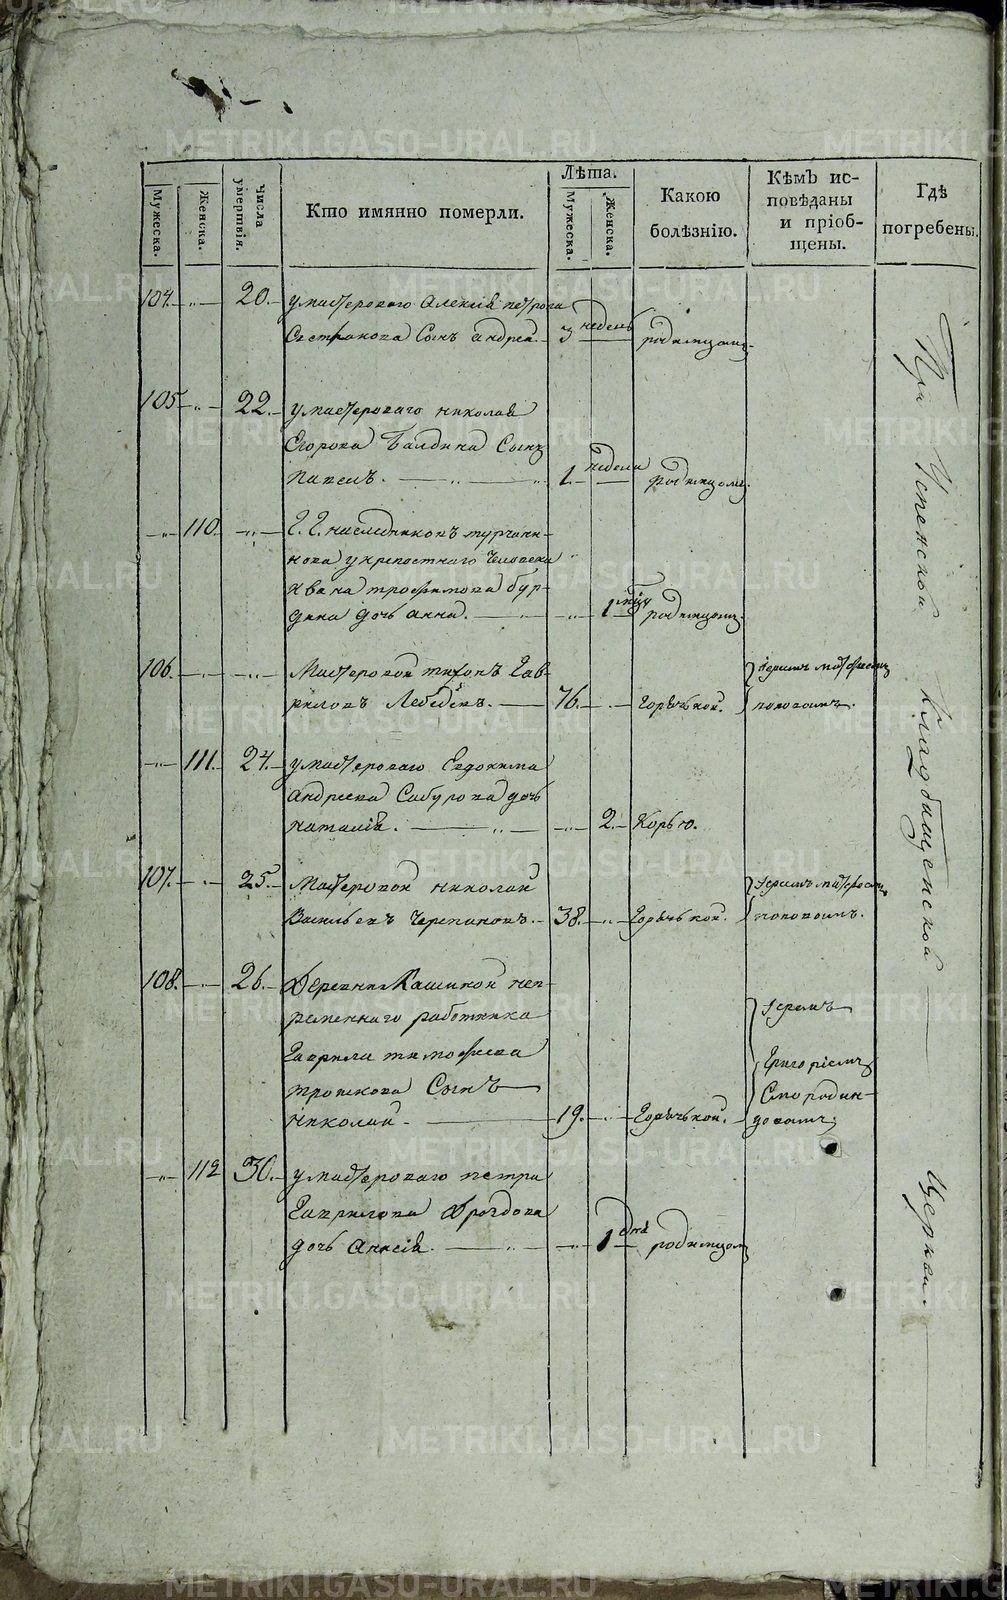 METRIKI.GASO-URAL.RU
Мужеска.
Женска.
Числа умертвія.
Кто имянно померли.
Лѣта.
Мужеска.
Женска.
Какою болѣзнію.
Кѣмъ исповѣданы и пріобщены.
Гдѣ погребены.
104. 20. у мастероваго Алексія петрова
сынъ андрей. 3 недель родимцомъ.
105 22. у мастероваго николая
Егорова Балдина Сынъ
павелъ. 1. недели родимцомъ.
110. Г. Г. наследниковъ турчани-
нова у крепостнаго человека
Ивана трофимова бур-
дина дочь анна. 1 родимцомъ.
106. Мастеровой тихонъ Гав-
риловъ Лебедевъ. 76. Горячькой.
Іереемъ
поповымъ.
111. 24. у мастероваго Евдокима
андреева Сабурова дочь
наталія. 2. Корью.
107. 25. Мастеровой николай
Васильевъ Черепановъ. 38. Горячькой.
Іереемъ
поповымъ.
108. 26. Деревни Кашиной неп-
ременнаго работника
Гаврилы тимофеева
трошкова Сынъ
николай. 19. Горячькой.
Іереемъ
Григоріемъ
Смородин-
цовымъ.
112 30. у мастероваго петра
Гаврилова Дроздова
дочь 1 дня родимцом
При Успенской Кладбищенской Церкви.